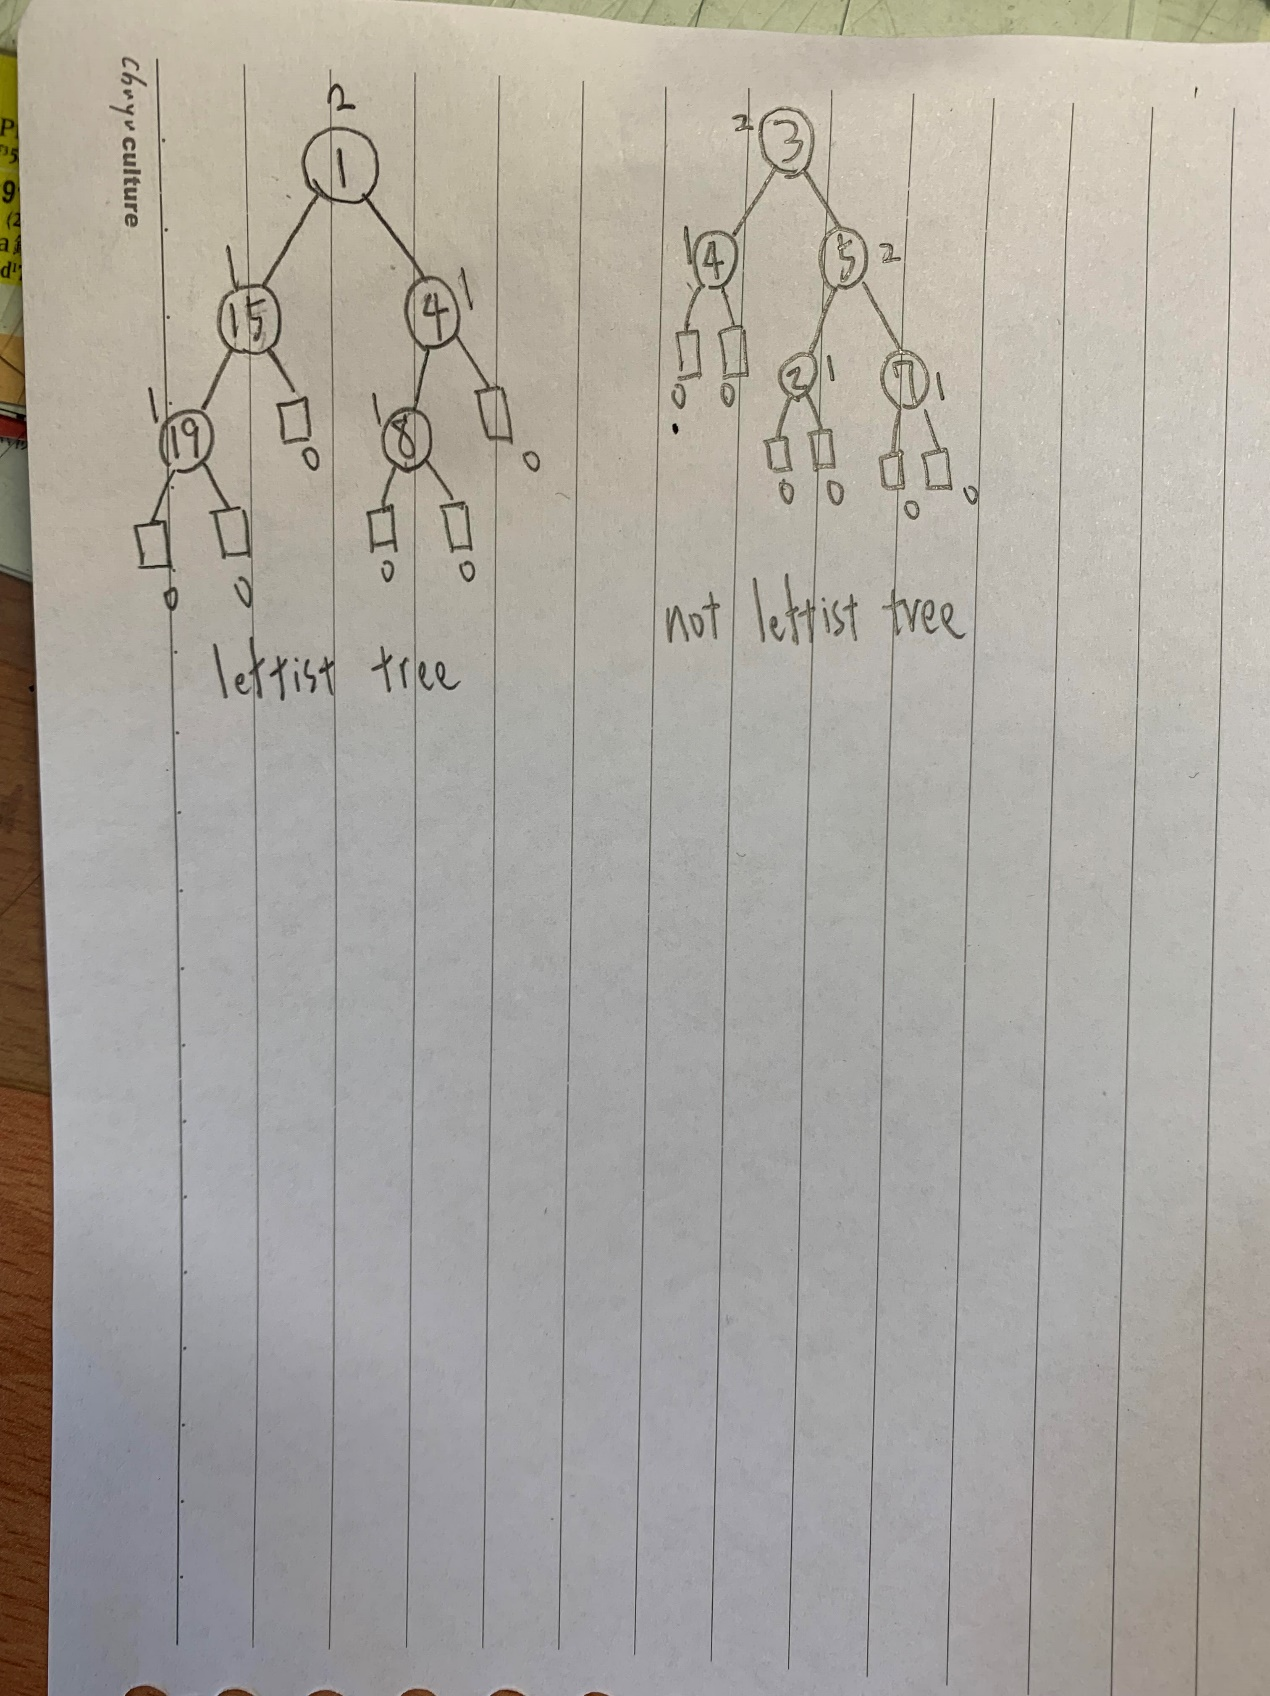 culture
2
1
1
15
4
1
1
19
0
1
8
0
0
0
0
0
leftist tree
2
3
1
4
5
2
0
0
2
1
7
1
0
0
0
0
not leftist tree